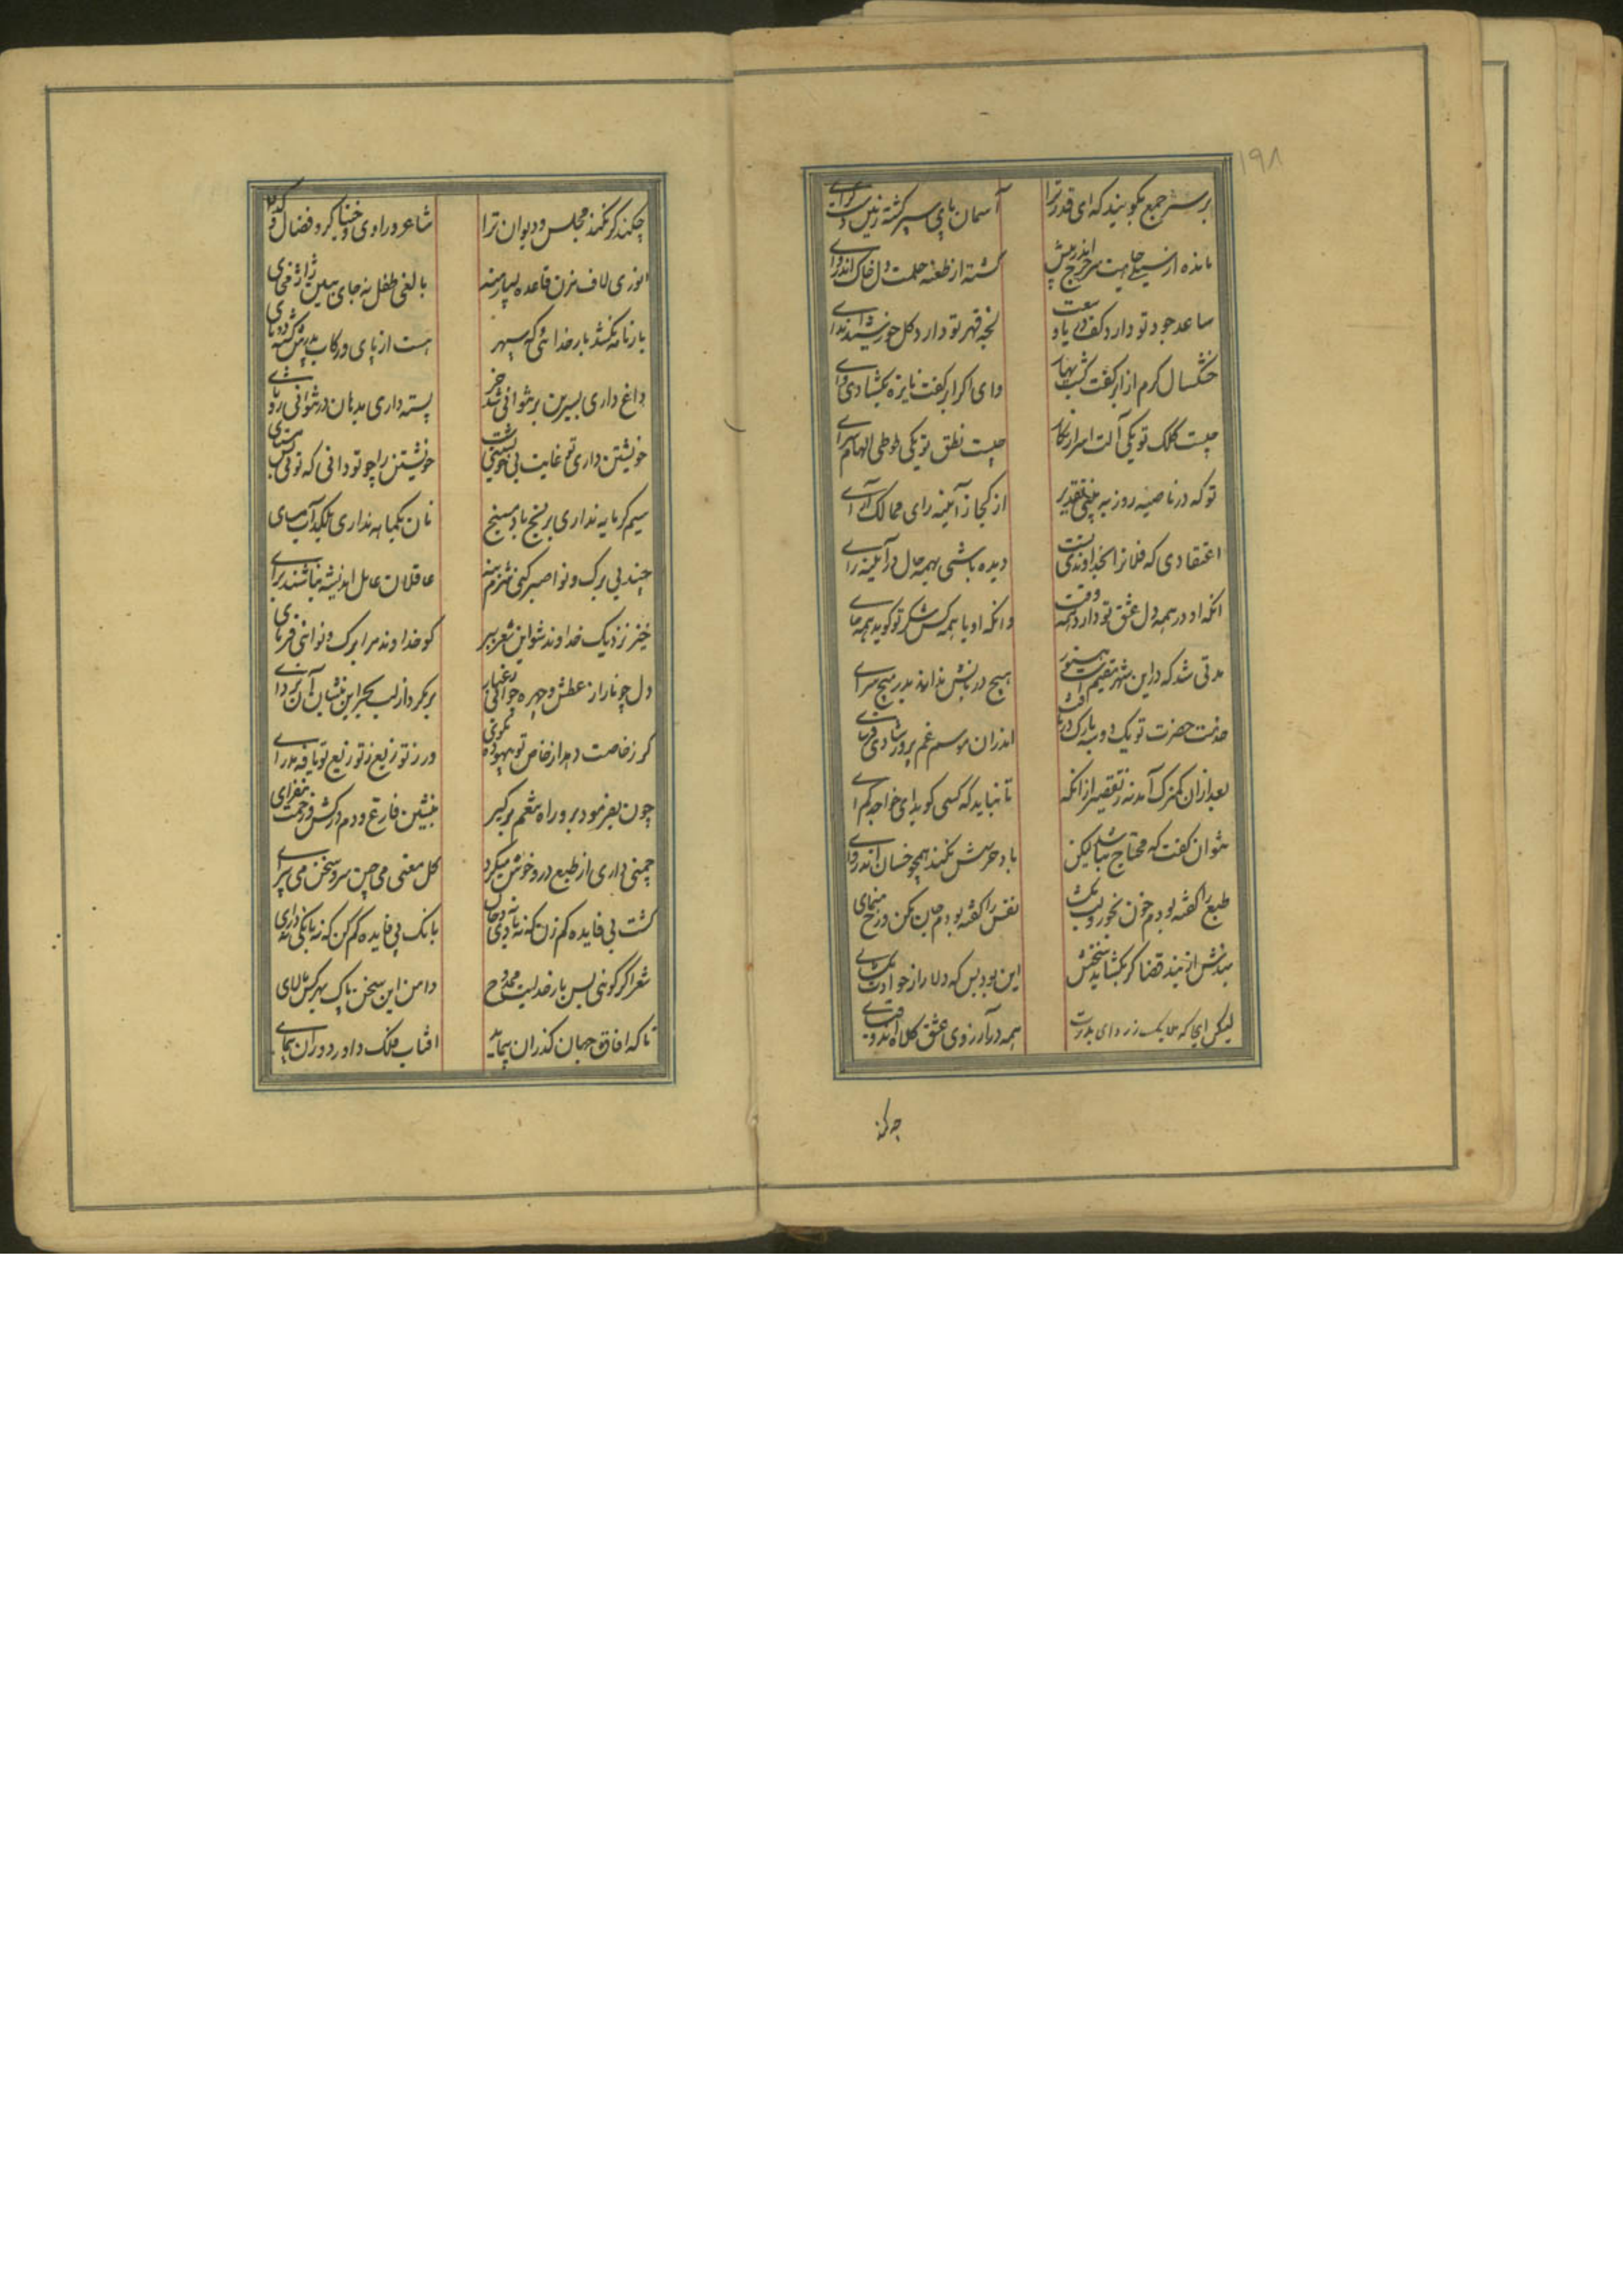 ۱۹۸
بر سر جمع بگویند که ای قدر ترا
آسمان پای سپر گشته زمین دست گرای
مانده از سیلی جاهت سر چرخ اندر پیش
گشته از طعنه حلمت دل خاک اندروای
ساعد جود تو دارد کف دریا وسعت
لخلخه قهر تو دارد کل خورشید اندای
خشکسال کرم از ابر کفت گشت بهار
وای اگر ابر کفت نایزه بگشادی وای
چیست کلک تو یکی آلت اسرار نگار
چیست نطق تو یکی طوطی الهام سرای
تو که در ناصیه روز به بینی تقدیر
از کجا ز آینه رای ممالک آرای
اعتقادی که فلانرا بخداوندی تست
دیده باشی بهمه حال در آئینه رای
انکه او در همه دل عشق تو دارد همه وقت
وانکه او با همه کس شکر تو گوید همه جای
مدتی شد که در این شهر مقیم است هنوز
هیچ دربانش نداند بدر هیچ سرای
خدمت حضرت تو یک دو سه بارک دریافت
اندران موسم غم پرور شادی فرسای
بعد از ان کمترک آمد نه ز تقصیر از انکه
تا نباید که کسی گوید ای خواجه کم آی
نتوان گفت که محتاج نباشد لیکن
باد حرصش نکند همچو خسان اندروای
طبع را گفته بودم خون بخور و لب مگشای
نفس را گفته بودم جان بکن و رخ منمای
بندش از بند قضا گر بگشاید سخنش
این بود بس که دلا راز حوادث مگشای
لیکن انجا که
همه در آرزوی عشق کلاه اند و قبای
چه کند
چکند گر نکند مجلس و دیوان ترا
شاعر و راوی و خنیاگر و فضال و گدای
انوری لاف مزن قاعده بسیار منه
بالغی طفل نه جای ببین ژاژ مخای
بار نامه نکشد بار خدائی که سپهر
هست از پای و رکاب پدرش گشته دو تای
داغ داری بسرین بر نتوانی شد حر
پسته داری بدهان در نتوانی زد نای
خویشتن داری تو غایت بی خویشتنیست
خویشتن را چو تو دانی که توئی کس مستای
سیم گرمابه نداری بزنخ باد مسنج
نان یکماهه نداری بلگد آب مسای
چند بی برگ و نوا صبر کنی شرم بنه
عاقلان عامل اندیشه نباشند برای
خیز نزدیک خداوند شو این شعر ببر
کو خداوند مرا برگ و نوائی فرمای
دل چو نار از عطش و چهره چو آبی ز غبار
بر مگرد از لب بحر این بنشان آن بزدای
گر ز خاصت دهد از خاص تو بیهوده مگوی
ور ز توزیع ز توزیع تو یافه مدرای
چون بفرمود برو راه تنعم برگیر
بنشین فارغ و دم درکش و زحمت مفزای
چمنی داری از طبع درو خوش میگرد
گل معنی می چین سرو سخن می پیرای
گشت بی فایده کم زن که نه بادی دی خان
بانک بی فایده کم کن که نه بانکی درای
شعر اگر گوئی پس بار خدایت ممدوح
دامن این سخن پاک بهر کس مالای
تا که افاق جهان گذران پیماید
افتاب فلک داور دوران پیمای